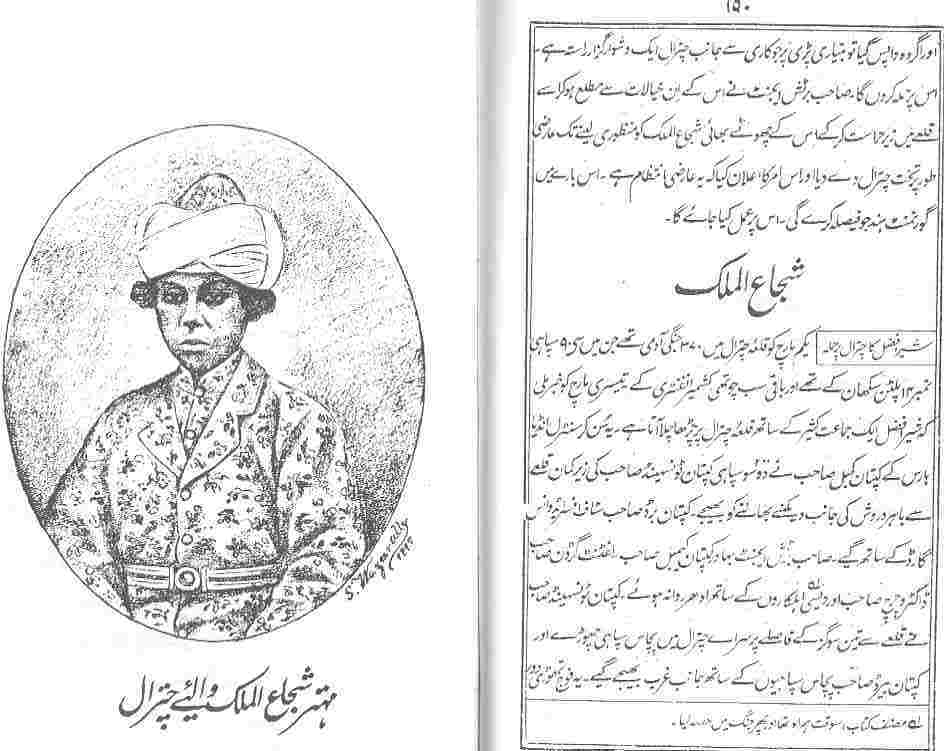 ۱۵۰
اور اگر وہ واپس گیا تو بتیاری پڑی پر جو کاری سے جانب چترال ایک دشوار گزار راستہ ہے۔
اس پر حملہ کروں گا۔ صاحب برٹش ایجنٹ نے اس کے ان خیالات سے مطلع ہو کر اسے
قلعے میں زیر حراست کر کے اس کے چھوٹے بھائی شجاع الملک کو منظوری لینے تک عارضی
طور پر تخت چترال دے دیا اور اس امر کا اعلان کیا کہ یہ عارضی انتظام ہے۔ اس بارے میں
گورنمنٹ ہند جو فیصلہ کرے گی۔ اس پر عمل کیا جائے گا۔
شجاع الملک
شیر افضل کا چترال پر حملہ یکم مارچ کو قلعہ چترال میں ۳۷۰ جنگی آدمی تھے جن میں سے ۹۹ سپاہی
نمبر ۱۴ پلٹن سکھان کے تھے اور باقی سب چوتھی کشمیر انفنٹری کے تیسری مارچ کو خبر ملی
کہ شیر افضل ایک جماعت کثیر کے ساتھ قلعہ چترال پر چڑھا چلا آتا ہے۔ یہ سن کر سنٹرل انڈیا
ہارس کے کپتان کمبل صاحب نے دو سو سپاہی کپتان ٹونسہینڈ صاحب کی زیر کمان قلعے
سے باہر دروش کی جانب دیکھنے بھالنے کو بھیجے۔ کپتان برڈ صاحب سٹاف افسر ایڈوانس
گارڈ کے ساتھ گیے۔ صاحب برٹش ایجنٹ بہادر کپتان کیمبل صاحب۔ لفٹنٹ گرڈن صاحب
ڈاکٹر وچرچ صاحب اور دیسی اہلکاروں کے ساتھ اودھر روانہ ہوئے۔ کپتان ٹونسہینڈ صاحب
نے قلعے سے تین سو گز کے فاصلے پر سرائے چترال میں پچاس سپاہی چھوڑے اور
کپتان بیرڈ صاحب پچاس سپاہیوں کے ساتھ جانب غرب بھیجے گیے۔ یہ فوج تھوڑی دور
لہ مصنف کتاب اسوقت ہمراہ تھا اور پھر جنگ میں حصہ لیا۔
S. 1895
مہتر شجاع الملک والیئے چترال